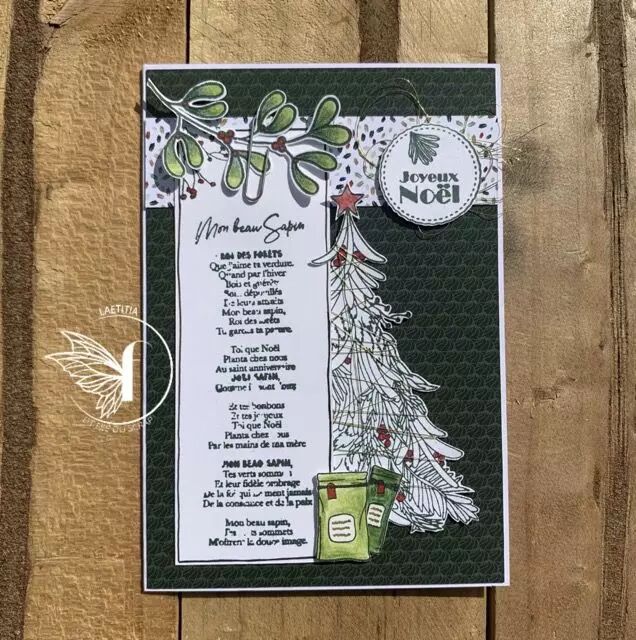 Joyeux
Noël
Mon beau Sapin
ROI DES FORÊTS
Que j'aime ta verdure.
Quand par l'hiver
Bois et guérets
Sont dépouillés
De leurs attraits
Mon beau sapin,
Roi des forêts
Tu gardes ta parure.
Toi que Noël
Planta chez nous
Au saint anniversaire
JOLI SAPIN,
Comme
Et tes bonbons
Et tes joujoux
Toi que Noël
Planta chez nous
Par les mains de ma mère
MON BEAU SAPIN,
Tes verts sommets
Et leur fidèle ombrage
De la foi qui ne ment jamais
De la constance et de la paix
Mon beau sapin,
sommets
M'offrent la douce image.
LAETITIA